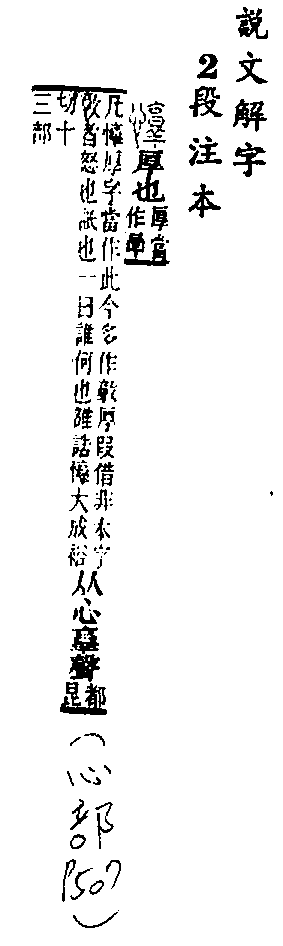 說文解字
2段注本
厚也
厚當
作㫗
凡惇厚字當作此今多作敦厚叚借非本字
敦者怒也詆也一曰誰何也雒誥惇大成裕
从心𦎫聲
都
昆
切十
三部
(心部P507)